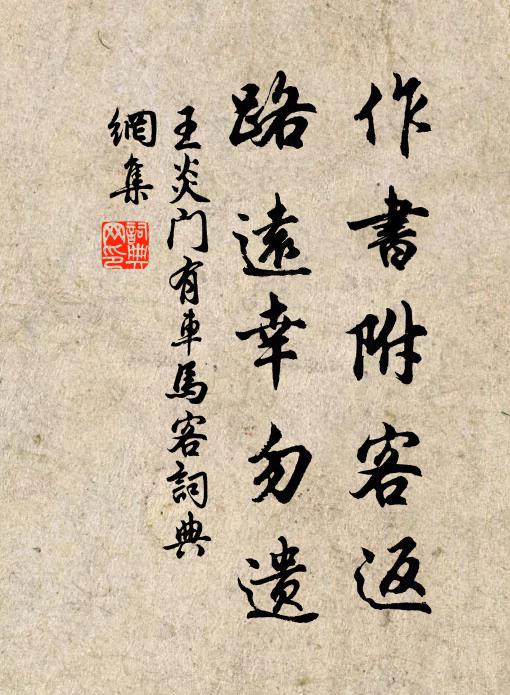 作書附客返
路遠幸勿遺
王炎門有車馬客詞典
網集
詞典
网印